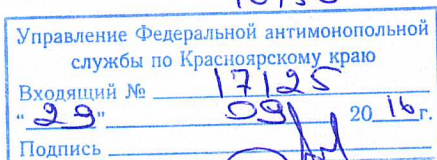 Управление Федеральной антимонопольной
службы по Красноярскому краю
Входящий № 17125
"29" 09 2016 г.
Подпись